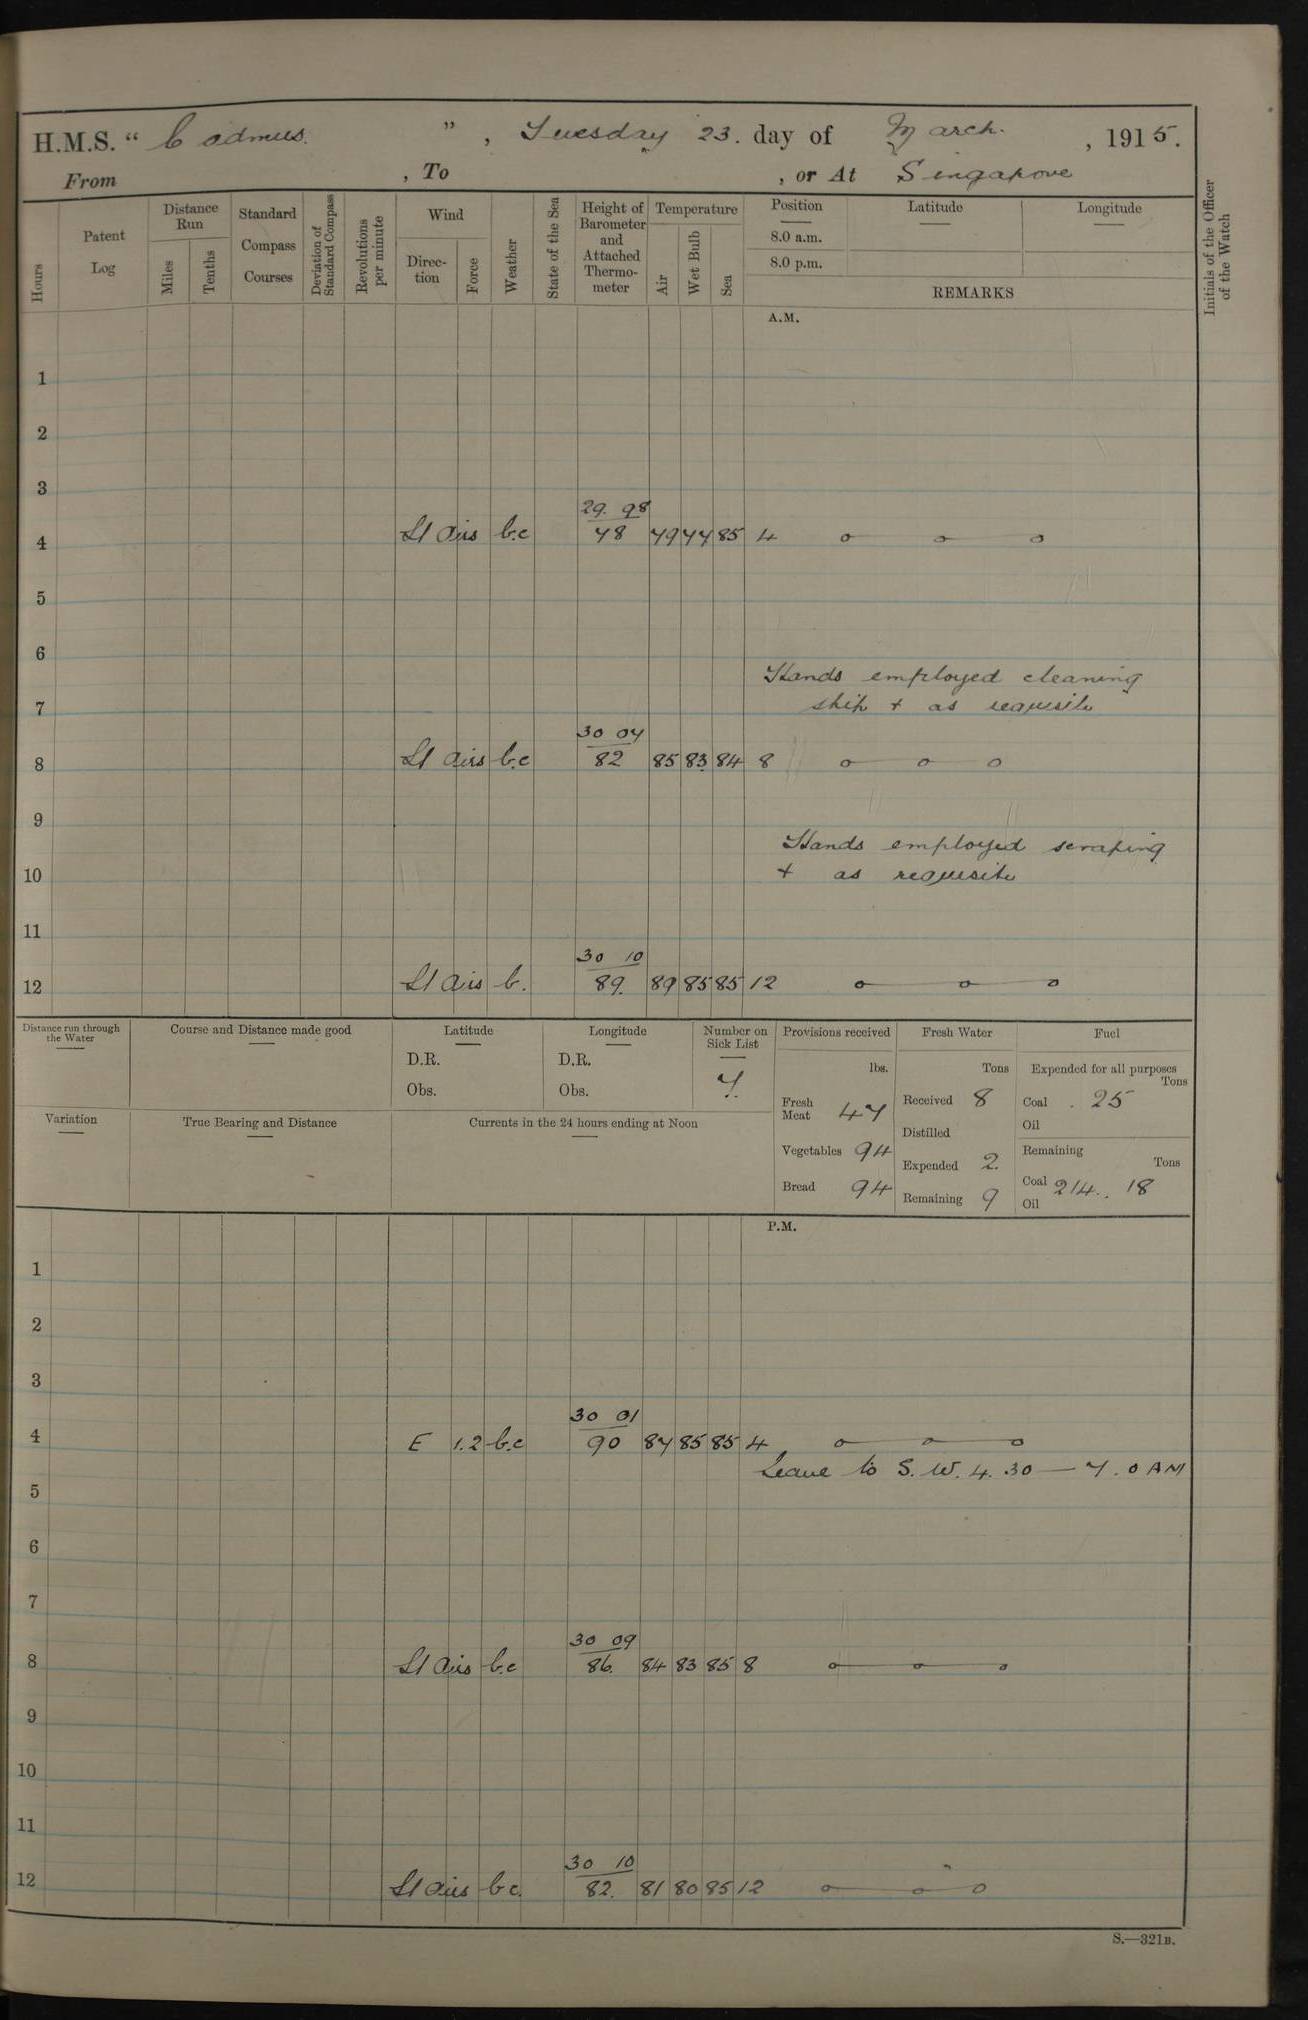 H.M.S. “ Cadmus. ”, Tuesday 23. day of March. , 1915.
From , To , or At Singapore
Hours
Patent Log
Distance Run
Miles
Tenths
Standard Compass Courses
Deviation of Standard Compass
Revolutions per minute
Wind
Direc-tion
Force
Weather
State of the Sea
Height of Barometer and Attached Thermo-meter
Temperature
Air
Wet Bulb
Sea
Position
8.0 a.m.
8.0 p.m.
Latitude
Longitude
REMARKS
Initials of the Officer of the Watch
A.M.
1
2
3
29. 98
4 Lt airs b.c 78 79 77 85 4
5
6
Hands employed cleaning
7 ship + as requisite
30 04
8 Lt airs b.c 82 85 83 84 8
9
Hands employed scraping
10 + as requisite
11
30 10
12 Lt airs b. 89. 89 85 85 12
Distance run through the Water
Course and Distance made good
Latitude
D.R.
Obs.
Longitude
D.R.
Obs.
Number on Sick List
7.
Provisions received
lbs.
Fresh Meat 47
Vegetables 94
Bread 94
Fresh Water
Tons
Received 8
Distilled
Expended 2.
Remaining 9
Fuel
Expended for all purposes
Tons
Coal . 25
Oil
Remaining
Tons
Coal 214.. 18
Oil
Variation
True Bearing and Distance
Currents in the 24 hours ending at Noon
P.M.
1
2
3
30 01
4 E 1.2 b.c 90 87 85 85 4
Leave to S.W. 4.30 — 7.0 AM
5
6
7
30 09
8 Lt airs b.c 86. 84 83 85 8
9
10
11
30 10
12 Lt airs b c. 82. 81 80 85 12
S.—321B.